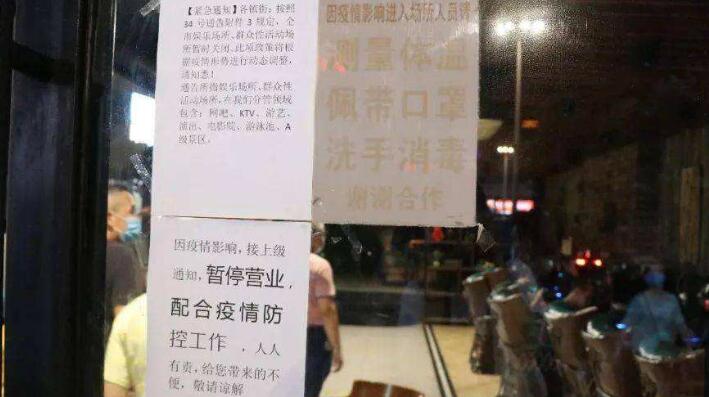 【紧急通知】各镇街：按照
34号通告附件3规定，全
市娱乐场所、群众性活动场
所暂时关闭。此项政策将根
据疫情形势进行动态调整，
请知悉！
通告所指娱乐场所、群众性
活动场所，在我们分管领域
包含：网吧、KTV、游艺、
演出、电影院、游泳池、A
级景区。
因疫情影响进入场所人员请
测量体温
佩带口罩
洗手消毒
谢谢合作
因疫情影响，接上级
通知，暂停营业，
配合疫情防
控工作，人人
有责，给您带来的不
便，敬请谅解